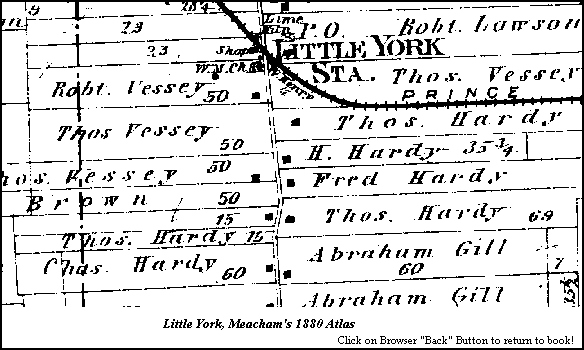 9
28 4
23
Lime
Kln
P.O.
Robt. Lawson
23
Shop
LITTLE YORK
W.M.Ch.
STA.
Thos. Vessey
Robt. Vessey 50
PRINCE
Thos. Hardy
Thos Vessey
50
H. Hardy 35 3/4
50
hos. Vessey
Fred Hardy
Brown 50
15
Thos. Hardy 69
Thos. Hardy 15
Abraham Gill
Chas. Hardy
60
60
7
Abraham Gill
Little York, Meacham's 1880 Atlas
Click on Browser "Back" Button to return to book!